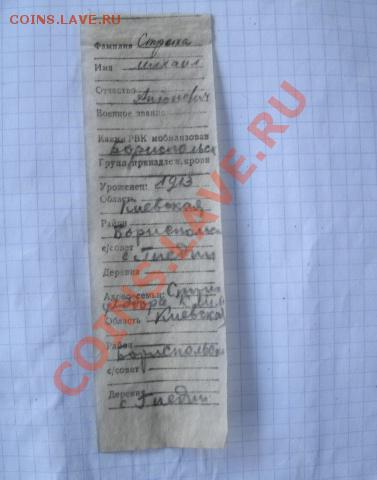 coins.LAVE.RU
Фамилия Страха
Имя Михаил
Отчество Антонович
Военное звание
Каким РВК мобилизован
Бориспольск
Група принадлеж. крови
Уроженец: 1913
Область
Киевская
Район
Борисполь
с/совет
с Гнедин
Деревня
Адрес семьи:
Область Киевская
Район
Борисполь
с/совет
Деревня
с Гнедин
COINS.LAVE.RU